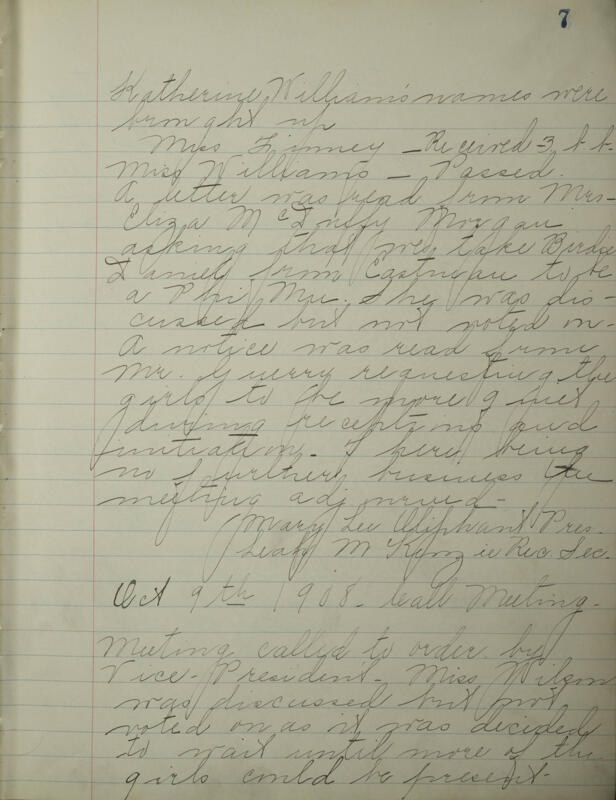 7
Katherine Williams names were
brought up
Miss Finney - Received 3 b. b.
Miss Williams - Passed.
A letter was read from Mrs-
Eliza McDuffy Morgan
asking that we take Birdie
Daniel from Eastman to be
a Phi Mu. She was dis-
cussed but not voted on-
A notice was read from
Mr. Guerry requesting the
girls to be more quiet
during receptions and
initiation. There being
no further business the
meeting adjourned-
Mary Lee Oliphant Pres.
Leah McKenzie Rec. Sec.
Oct 9th 1908- Call Meeting.
Meeting called to order by
Vice-President- Miss Wilson
was discussed but not
voted on as it was decided
to wait until more of the
girls could be present-